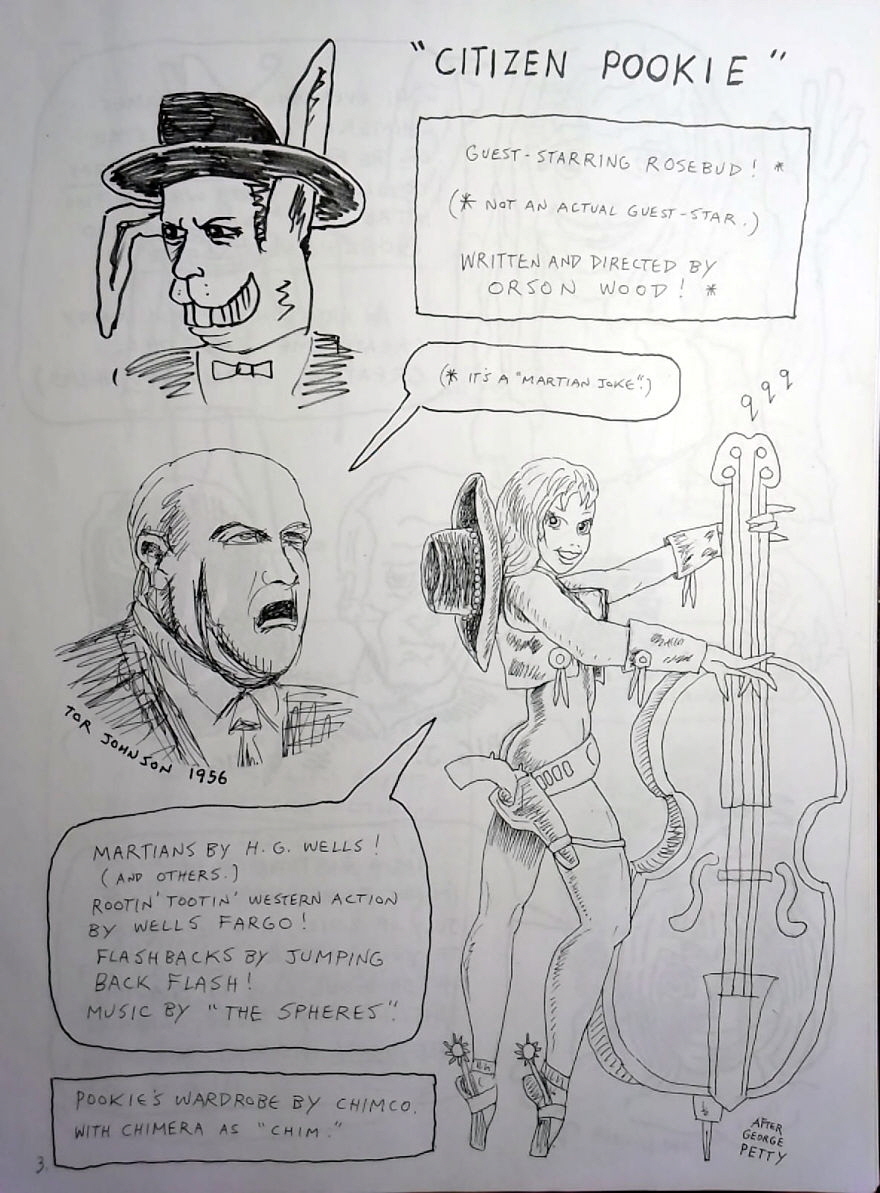 "CITIZEN POOKIE"
GUEST-STARRING ROSEBUD! *
(* NOT AN ACTUAL GUEST-STAR.)
WRITTEN AND DIRECTED BY
ORSON WOOD! *
(* IT'S A "MARTIAN JOKE".)
TOR JOHNSON 1956
MARTIANS BY H. G. WELLS!
(AND OTHERS.)
ROOTIN' TOOTIN' WESTERN ACTION
BY WELLS FARGO!
FLASHBACKS BY JUMPING
BACK FLASH!
MUSIC BY "THE SPHERES".
POOKIE'S WARDROBE BY CHIMCO.
WITH CHIMERA AS "CHIM."
AFTER
GEORGE
PETTY
3.